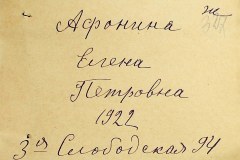 Афонина
Елена
Петровна
1922
3ья Слободская 94